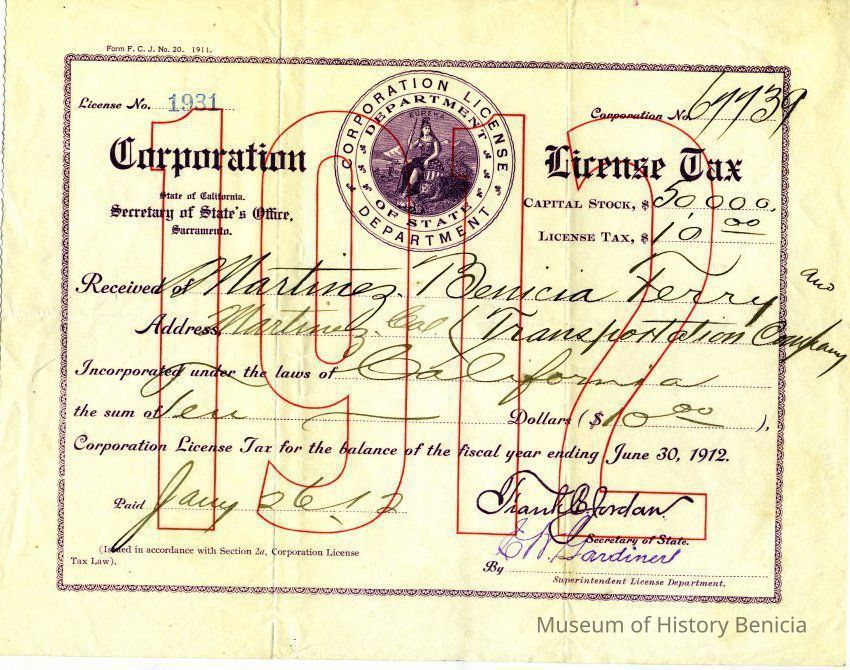 Form F. C. J. No. 20. 1911.
License No. 1931
Corporation No. 69939
CORPORATION LICENSE DEPARTMENT
DEPARTMENT OF STATE
EUREKA
1912
Corporation License Tax
State of California.
Secretary of State's Office,
Sacramento.
CAPITAL STOCK, $ 50,000.
LICENSE TAX, $ 10 00
Received of Martinez Benicia Ferry and
Address, Martinez Cal (Transportation Company
Incorporated under the laws of California
the sum of Ten Dollars ($ 10 00 ),
Corporation License Tax for the balance of the fiscal year ending June 30, 1912.
Paid Jany 26 - 12
Frank C Jordan
Secretary of State.
(Issued in accordance with Section 2a, Corporation License
Tax Law).
By Gardiner
Superintendent License Department.
Museum of History Benicia